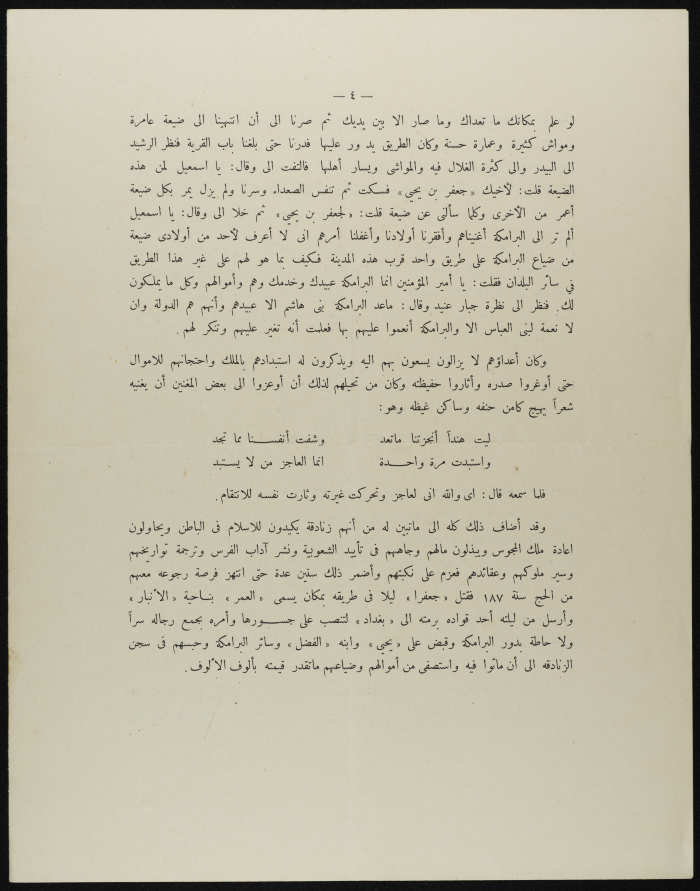 — ٤ —
لو علم بمكانك ما تعداك وما صار الا بين يديك ثم صرنا الى أن انتهينا الى ضيعة عامرة
ومواش كثيرة وعمارة حسنة وكان الطريق يد ور عليها فدرنا حتى بلغنا باب القرية فنظر الرشيد
الى البيدر والى كثرة الغلال فيه والمواشى ويسار أهلها فالتفت الى وقال: يا اسمعيل لمن هذه
الضيعة قلت: لأخيك «جعفر بن يحيى» فسكت ثم تنفس الصعداء وسرنا ولم يزل يمر بكل ضيعة
أعمر من الأخرى وكلما سألنى عن ضيعة قلت: «لجعفر بن يحيى» ثم خلا الى وقال: يا اسمعيل
ألم تر الى البرامكة أغنيناهم وأفقرنا أولادنا وأغفلنا أمرهم انى لا أعرف لأحد من أولادى ضيعة
من ضياع البرامكة على طريق واحد قرب هذه المدينة فكيف بما هو لهم على غير هذا الطريق
في سائر البلدان فقلت: يا أمير المؤمنين انما البرامكة عبيدك وخدمك وهم وأموالهم وكل ما يملكون
لك. فنظر الى نظرة جبار عنيد وقال: ماعد البرامكة بنى هاشم الا عبيدهم وأنهم هم الدولة وان
لا نعمة لبنى العباس الا والبرامكة أنعموا عليهم بها فعلمت أنه تغير عليهم وتنكر لهم.
وكان أعداؤهم لا يزالون يسعون بهم اليه ويذكرون له استبدادهم بالملك واحتجانهم للاموال
حتى أوغروا صدره وأثاروا حفيظته وكان من تحيلهم لذلك أن أوعزوا الى بعض المغنين أن يغنيه
شعراً يهيج كامن حنفه وساكن غيظه وهو:
ليت هنداً أنجزتنا ماتعد وشفت أنفســـنا مما تجد
واستبدت مرة واحـــدة انما العاجز من لا يســتبد
فلما سمعه قال: اى والله انى لعاجز وتحركت غيرته وثارت نفسه للانتقام.
وقد أضاف ذلك كله الى ماتبين له من أنهم زنادقة يكيدون للاسلام فى الباطن ويحاولون
اعادة ملك المجوس ويبذلون مالهم وجاههم فى تأييد الشعوبية ونشر آداب الفرس وترجمة تواريخهم
وسير ملوكهم وعقائدهم فعزم على نكبتهم وأضمر ذلك سنين عدة حتى انتهز فرصة رجوعه معهم
من الحج سنة ١٨٧ فقتل «جعفرا» ليلا فى طريقه بمكان يسمى «العمر» بنــاحية «الأنبار»
وأرسل من ليلته أحد قواده برمته الى «بغداد» لتنصب على جســـورها وأمره بجمع رجاله سراً
ولا حاطة بدور البرامكة وقبض على «يحيى» وابنه «الفضل» وسائر البرامكة وحبسهم فى سجن
الزنادقه الى أن ماتوا فيه واستصفى من أموالهم وضياعهم ماتقدر قيمته بألوف الألوف.